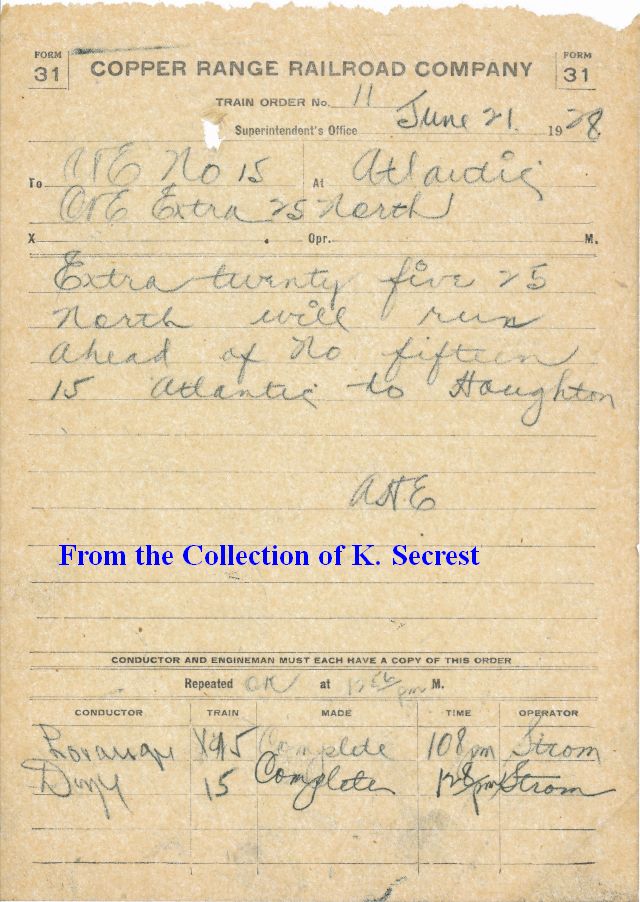 FORM 31
COPPER RANGE RAILROAD COMPANY
FORM 31
TRAIN ORDER No. 11
Superintendent's Office June 21 1928
To C&E No 15 At Atlantic
C&E Extra 25 North
X . Opr. M.
Extra twenty five 25
North will run
ahead of No fifteen
15 Atlantic to Houghton
AHE
From the Collection of K. Secrest
CONDUCTOR AND ENGINEMAN MUST EACH HAVE A COPY OF THIS ORDER
Repeated OK at pm M.
CONDUCTOR TRAIN MADE TIME OPERATOR
Complete 108 pm Strom
15 Complete 128 pm Strom